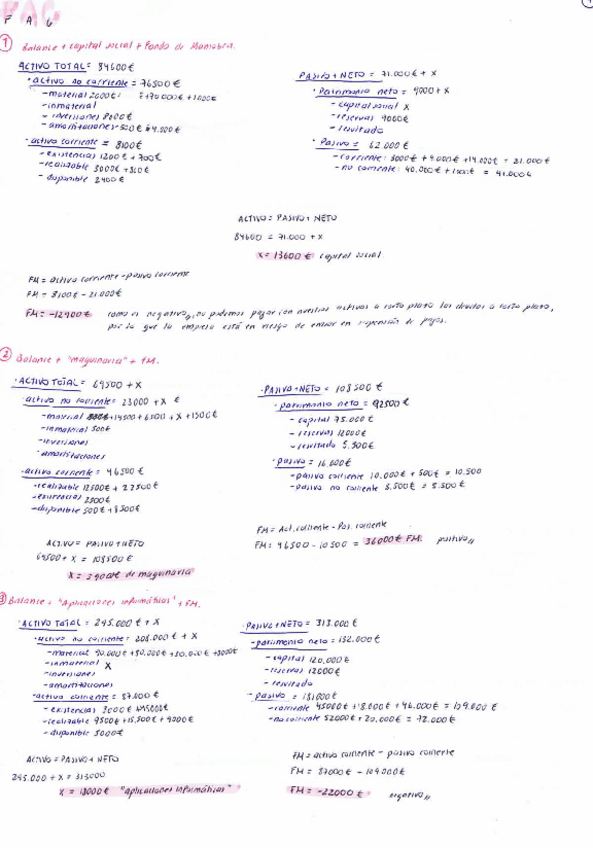 PAG
F A G
1 Balance + capital social + Fondo de Maniobra.
ACTIVO TOTAL = 84600€
· activo no corriente = 76500€
- material 2000€ + 70.000€
- inmaterial
- inversiones
- amortizaciones
· activo corriente = 8100€
- existencias 1200€ + 700€
- realizable 3000€ + 800€
- disponible 2400€
PASIVO + NETO = 71.000€ + X
· Patrimonio neto = 9000 + X
- capital social X
- reservas 9000€
- resultado
· Pasivo = 62.000€
- corriente: 3000€ + 4.000€ + 14.000€ = 21.000€
- no corriente: 40.000€ + 1000€ = 41.000€
ACTIVO = PASIVO + NETO
84600 = 71.000 + X
X = 13600€ capital social
FM = activo corriente - pasivo corriente
FM = 8100€ - 21.000€
FM = -12900€ como es negativo, no podemos pagar con nuestros activos a corto plazo las deudas a corto plazo,
por lo que la empresa está en riesgo de entrar en suspensión de pagos.
2 Balance + "maquinaria" + FM.
· ACTIVO TOTAL = 69500 + X
· activo no corriente = 23000 + X €
- material + 14500 + 6500 + X + 1500€
- inmaterial 500€
- inversiones
- amortizaciones
- activo corriente = 46500€
- realizable 12500€ + 22500€
- existencias 2500€
- disponible 500€ + 8500€
· PASIVO + NETO = 108500€
· patrimonio neto = 92500€
- capital 75.000€
- reservas 12000€
- resultado 5.500€
· pasivo = 16.000€
- pasivo corriente 10.000€ + 500€ = 10.500
- pasivo no corriente 5.500€ = 5.500€
ACTIVO = PASIVO + NETO
69500 + X = 108500€
X = 39000€ de maquinaria
FM = Act. corriente - Pas. corriente
FM = 46500 - 10500 = 36000€ FM. positivo
3 Balance + "Aplicaciones informáticas" + FM.
· ACTIVO TOTAL = 295.000€ + X
· activo no corriente = 208.000€ + X
- material 90.000€ + 80.000€
- inmaterial X
- inversiones
- amortizaciones
- activo corriente = 87.000€
- existencias 3000€
- realizable 9500€ + 15.500€ + 9000€
- disponible 5000€
· PASIVO + NETO = 313.000€
- patrimonio neto = 132.000€
- capital 120.000€
- reservas 12000€
- resultado
- pasivo = 181000€
- corriente 45000€ + 18.000€ + 46.000€ = 109.000€
- no corriente 52000€ + 20.000€ = 72.000€
ACTIVO = PASIVO + NETO
295.000 + X = 313000
X = 18000€ "aplicaciones informáticas"
FM = activo corriente - pasivo corriente
FM = 87000€ - 109.000€
FM = -22000€ negativo